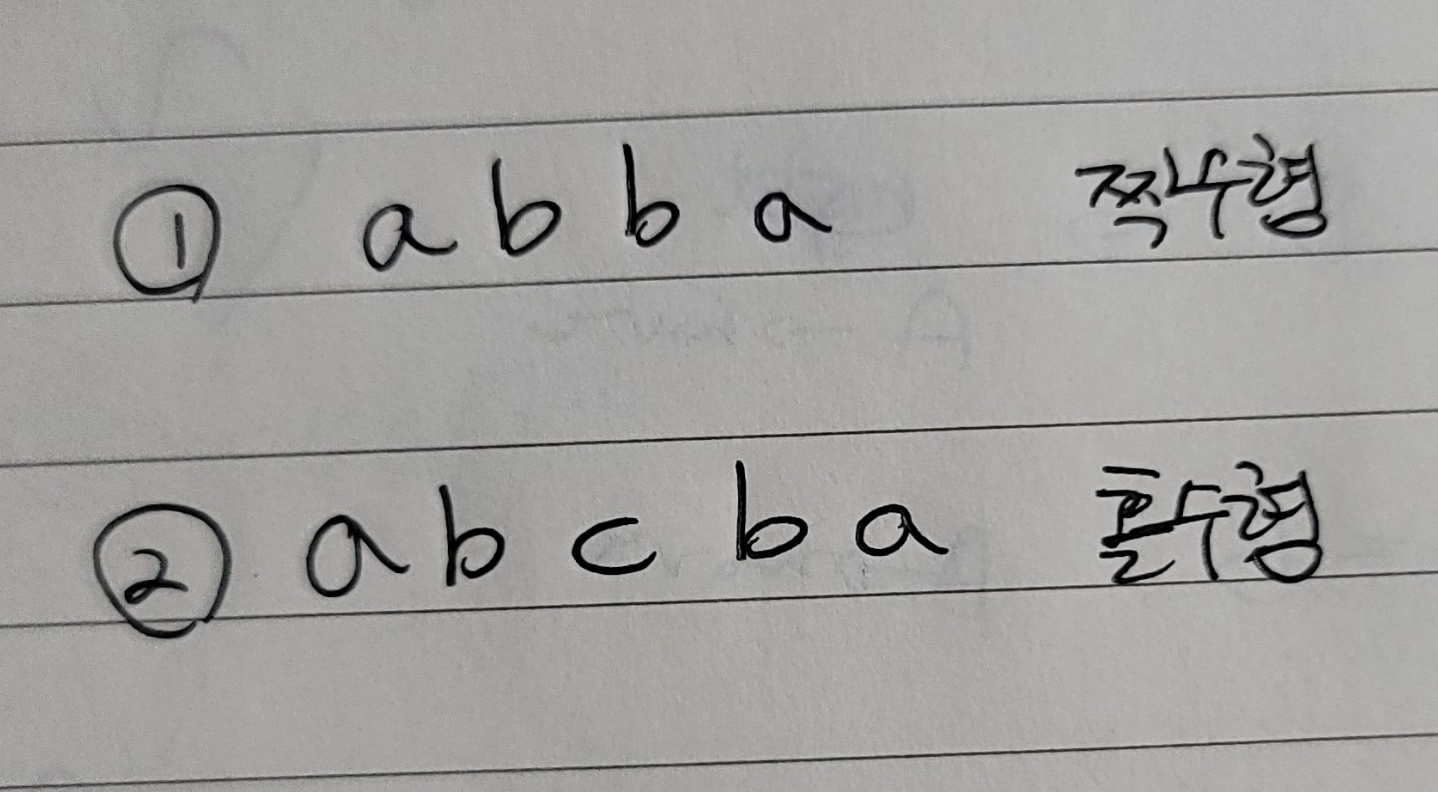 ① a b b a 짝수형
② a b c b a 홀수형